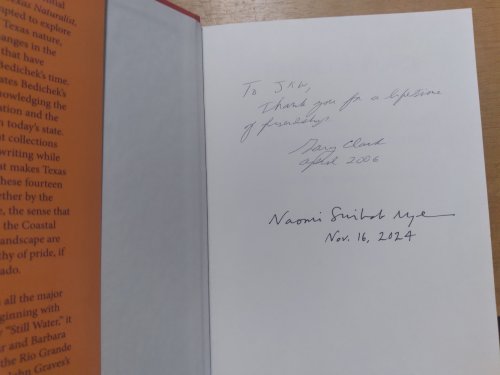 exas Naturalist,
pted to explore
Texas nature,
anges in the
that have
Bedichek's time.
ates Bedichek's
nowledging the
ation and the
n today's state.
nt collections
writing while
at makes Texas
hese fourteen
ether by the
e, the sense that
the Coastal
andscape are
thy of pride, if
ado.
all the major
ginning with
"Still Water," it
ir and Barbara
the Rio Grande
John Graves's
To
Thank you for a lifetime
of friendship
Gary Clark
April 2006
Naomi Shihab Nye
Nov. 16, 2024